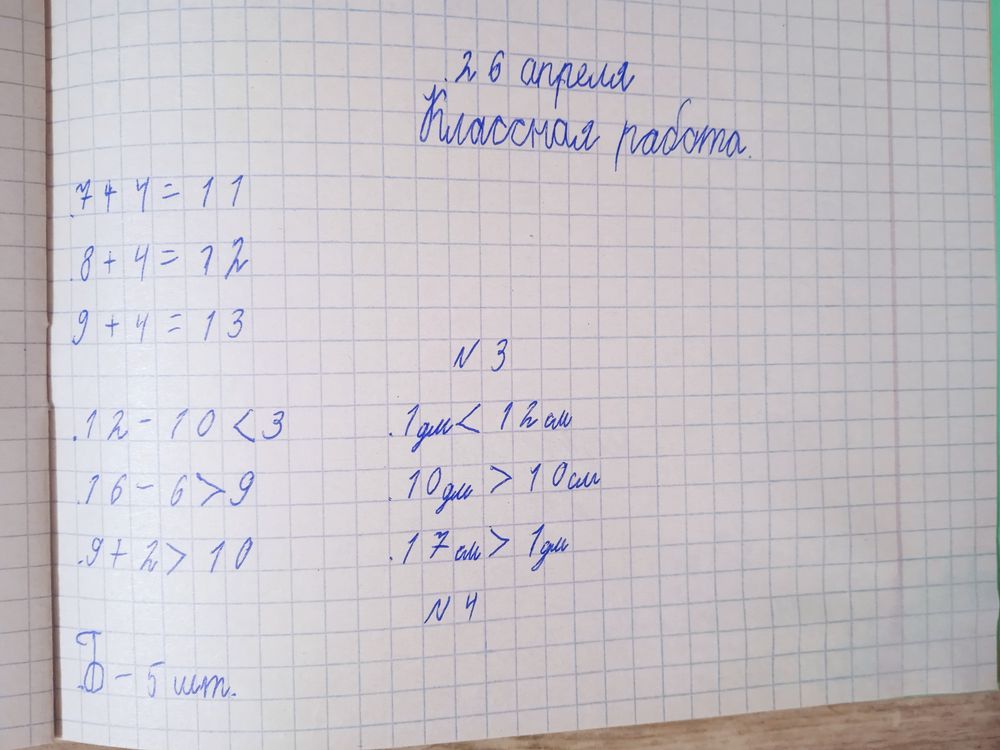 26 апреля
Классная работа.
7 + 4 = 11
8 + 4 = 12
9 + 4 = 13
N 3
12 - 10 < 3
16 - 6 > 9
9 + 2 > 10
1дм < 12см
10дм > 10см
17см > 1дм
N 4
Б - 5 шт.